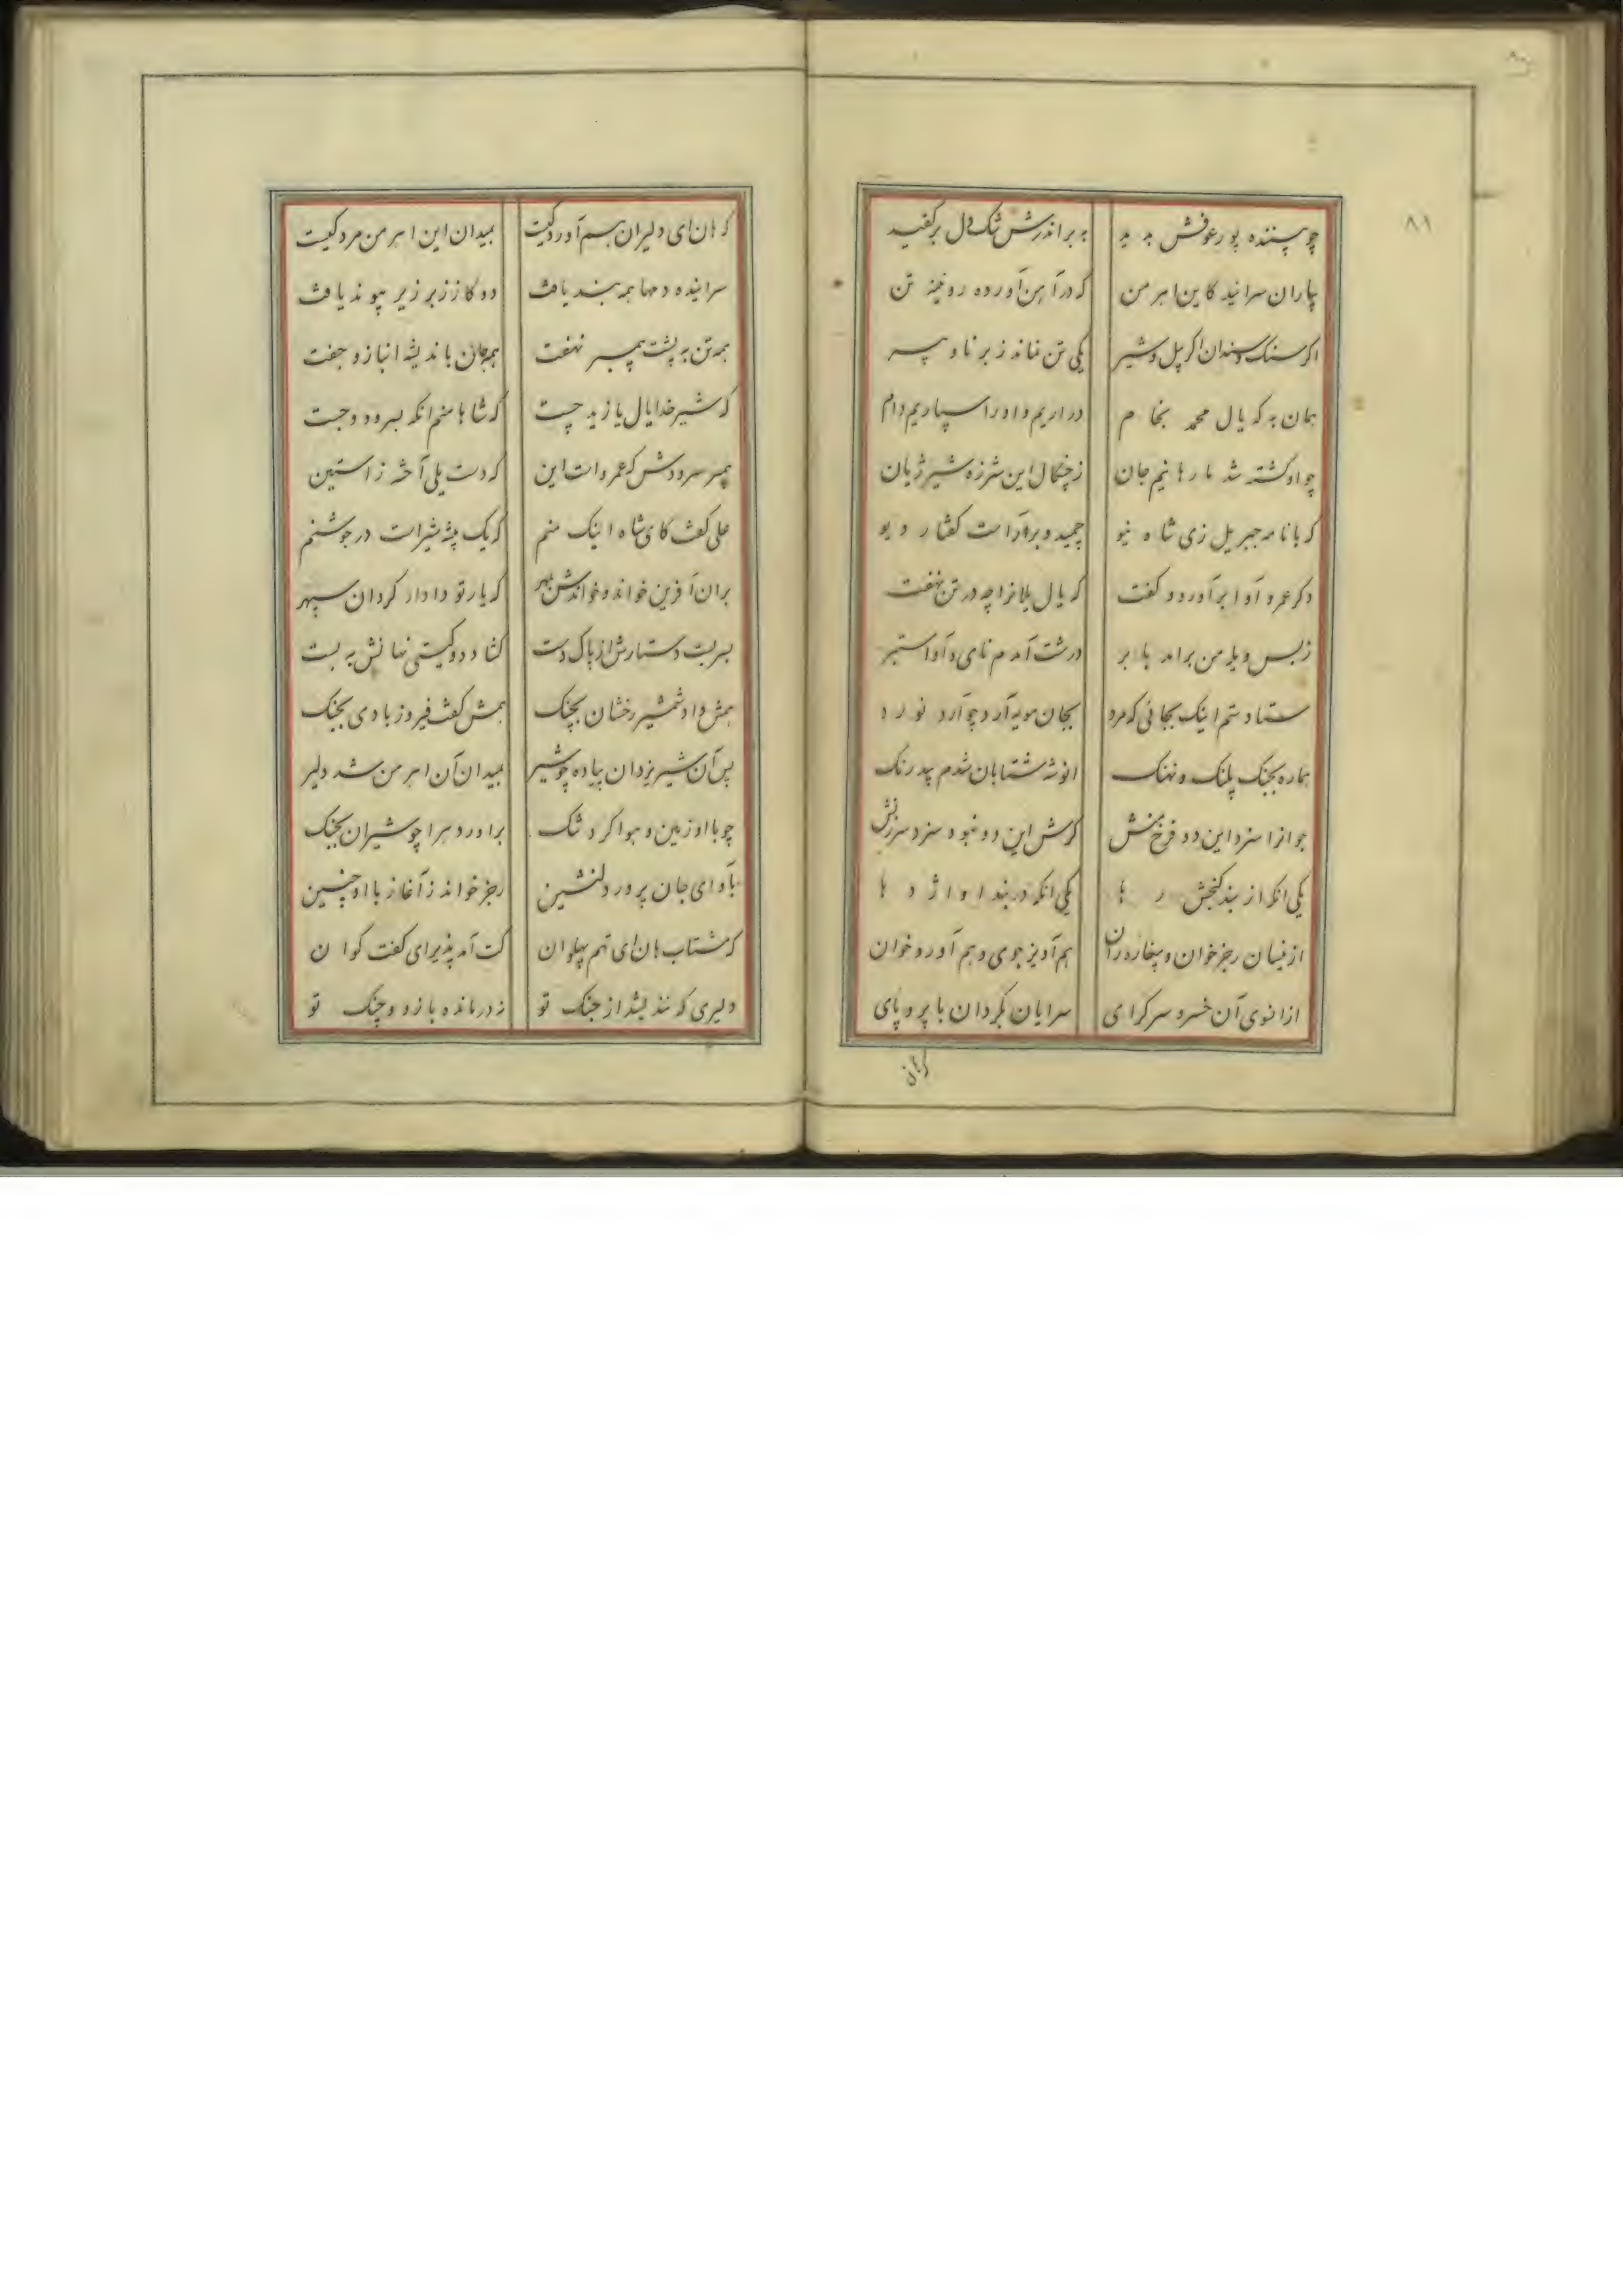 ۸۱
چو بیننده پور عوفش بدید به بر اندرش تنک دل برکفید
بیاران سرائید کاین اهرمن که در آهن آورده روئینه تن
اگر سنک وسندان اگر پیل وشیر یکی تن نماند ز برنا و پیر
همان به که یال محمد بخام در اریم و او را سپاریم دام
چو او کشته شد ما رهانیم جان ز چنکال این شرزه شیر ژیان
که با نامه جبریل زی شاه نیو چمید و برو راست گفتار دیو
دکر عمرو آوا برآورد و کفت که یال یلان را چه در تن نهفت
ز بس ویله من براند با بر درشت آمدم نای و آوا ستبر
ستادستم اینک بجائی که مرد بجان مویه آرد چو آرد نورد
هماره بجنک پلنک و نهنک انوشه شتابان شدم بیدرنک
جوانرا سزد این دو فرخ منش کرش این دو نبود سزد سرزنش
یکی انکه از بند کنجش رها یکی انکه در بند او اژدها
ازینسان رجز خوان و بیغاره ران هم آویز جوی و هم آورد خوان
ازانسوی آن خسرو سرکرای سرایان بکردان با پر و پای
که هان
که هان ای دلیران هم آورد کیست بمیدان این اهرمن مرد کیست
سراینده دمها همه بند یافت دو کاز زبر زیر پیوند یافت
همه تن به پشت پیمبر نهفت همه جان باندیشه انباز و جفت
که شیر خدا یال یازید چست که شاها منم انکه بسرود و جست
پیمبر سرودش که عمرو است این که دست یلی آخته ز استین
علی کفت کای شاه اینک منم که یک بیشه شیر است در جوشنم
بران آفرین خواند و خواندش بمهر که یار تو دادار کردان سپهر
بسر بست دستارش از پاک دست کشاد دو کیتی نهانش به بست
همش داد شمشیر رخشان بچنک همش کفت فیروز بادی بجنک
پس آن شیر یزدان پیاده چو شیر بمیدان آن اهرمن شد دلیر
چو با او زمین و هوا کرد تنک براورد هرا چو شیران بجنک
بآوای جان پرور دلنشین رجز خواند ز آغاز با او چنین
که مشتاب هان ای تهم پهلوان کت آمد پذیرای کفت کوان
دلیری که نندیشد از جنک تو ز درمانده بازو و چنک تو